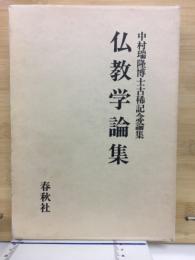 中村瑞隆博士古稀記念論集
仏教学論集
春秋社